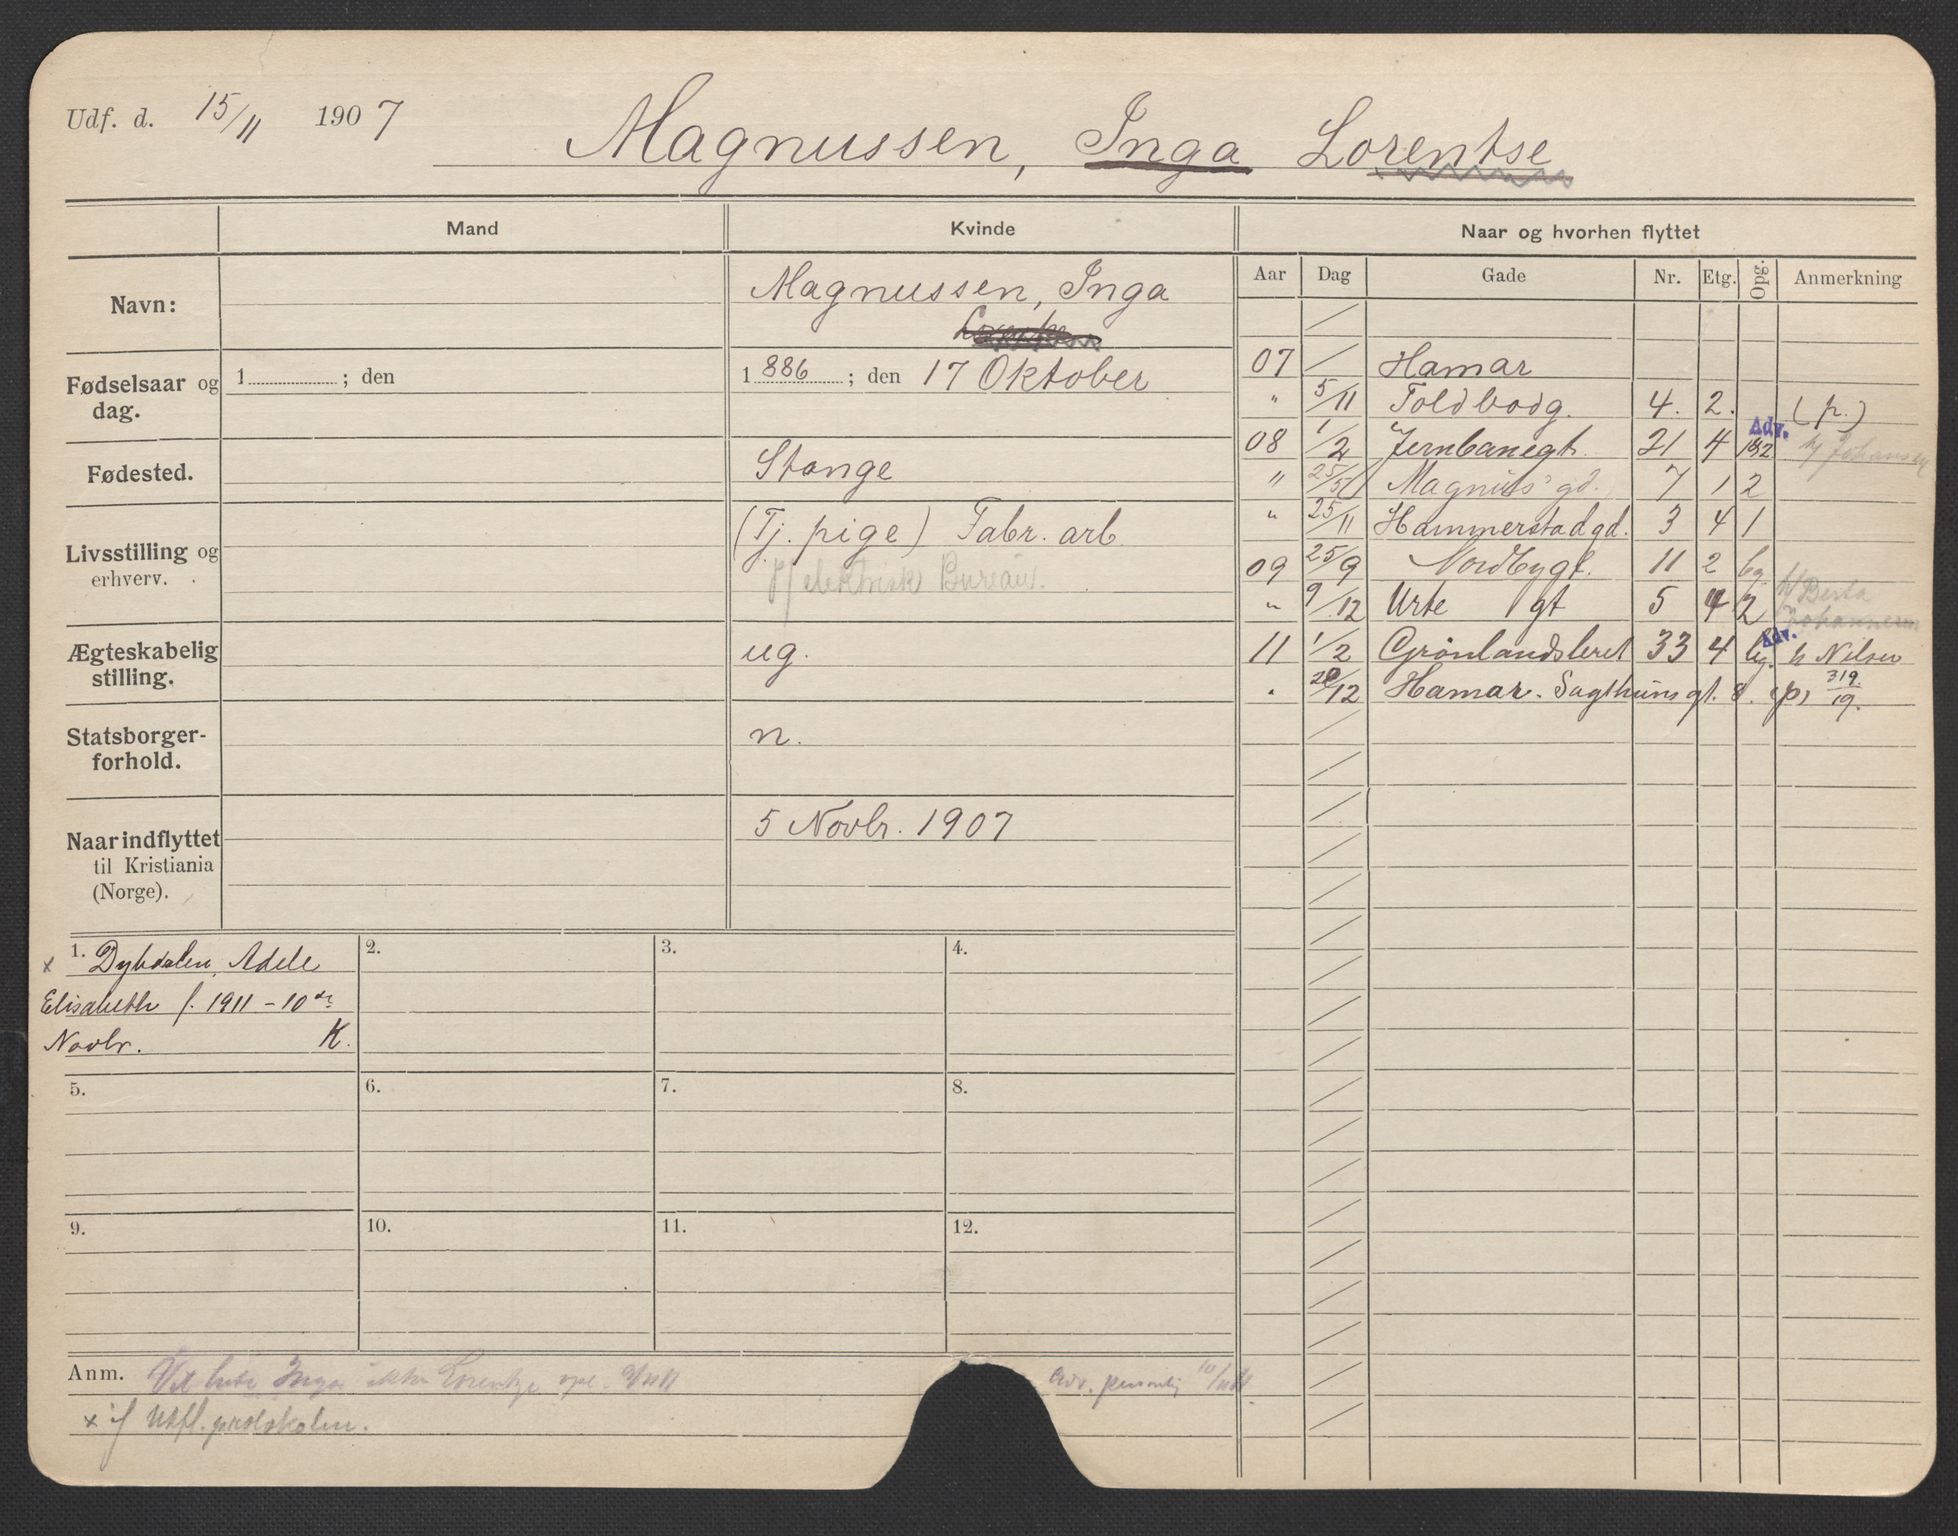 Udf. d. 15/11 1907
Magnussen, Inga Lorentse
Mand
Kvinde
Naar og hvorhen flyttet
Navn:
Magnussen, Inga
Fødselsaar og dag.
1 ; den
1886 ; den 17 Oktober
Fødested.
Stange
Livsstilling og erhverv.
(Tj. pige) Fabr. arb
elektrisk Bureau.
Ægteskabelig stilling.
ug.
Statsborger-forhold.
n.
Naar indflyttet til Kristiania (Norge).
5 Novbr. 1907
Aar Dag Gade Nr. Etg. Opg. Anmerkning
07 Hamar
" 5/11 Toldbodg. 4. 2. (p.)
Adv.
08 1/2 Jernbanegt. 21 4 h/ Johansen
" Magnus' gd. 7 1 2
" 25/11 Hammerstadgd. 3 4 1
09 25/9 Nordbygt. 11 2 bg.
" 9/12 Urte gt 5 4 2 h/ Berta Johannesen
Adv.
11 1/2 Grønlandsleret 33 4 bg. h Nilsen
. 20/12 Hamar. Sagthuns gt. 8. (p) 319/19.
1. Dybdalen, Adele
x
Elisabeth f. 1911 – 10de
Novbr. K.
2.
3.
4.
5.
6.
7.
8.
9.
10.
11.
12.
Anm. Vil hete Inga ikke Lorentze
Adv. personlig
x if Utfl. protokolen.